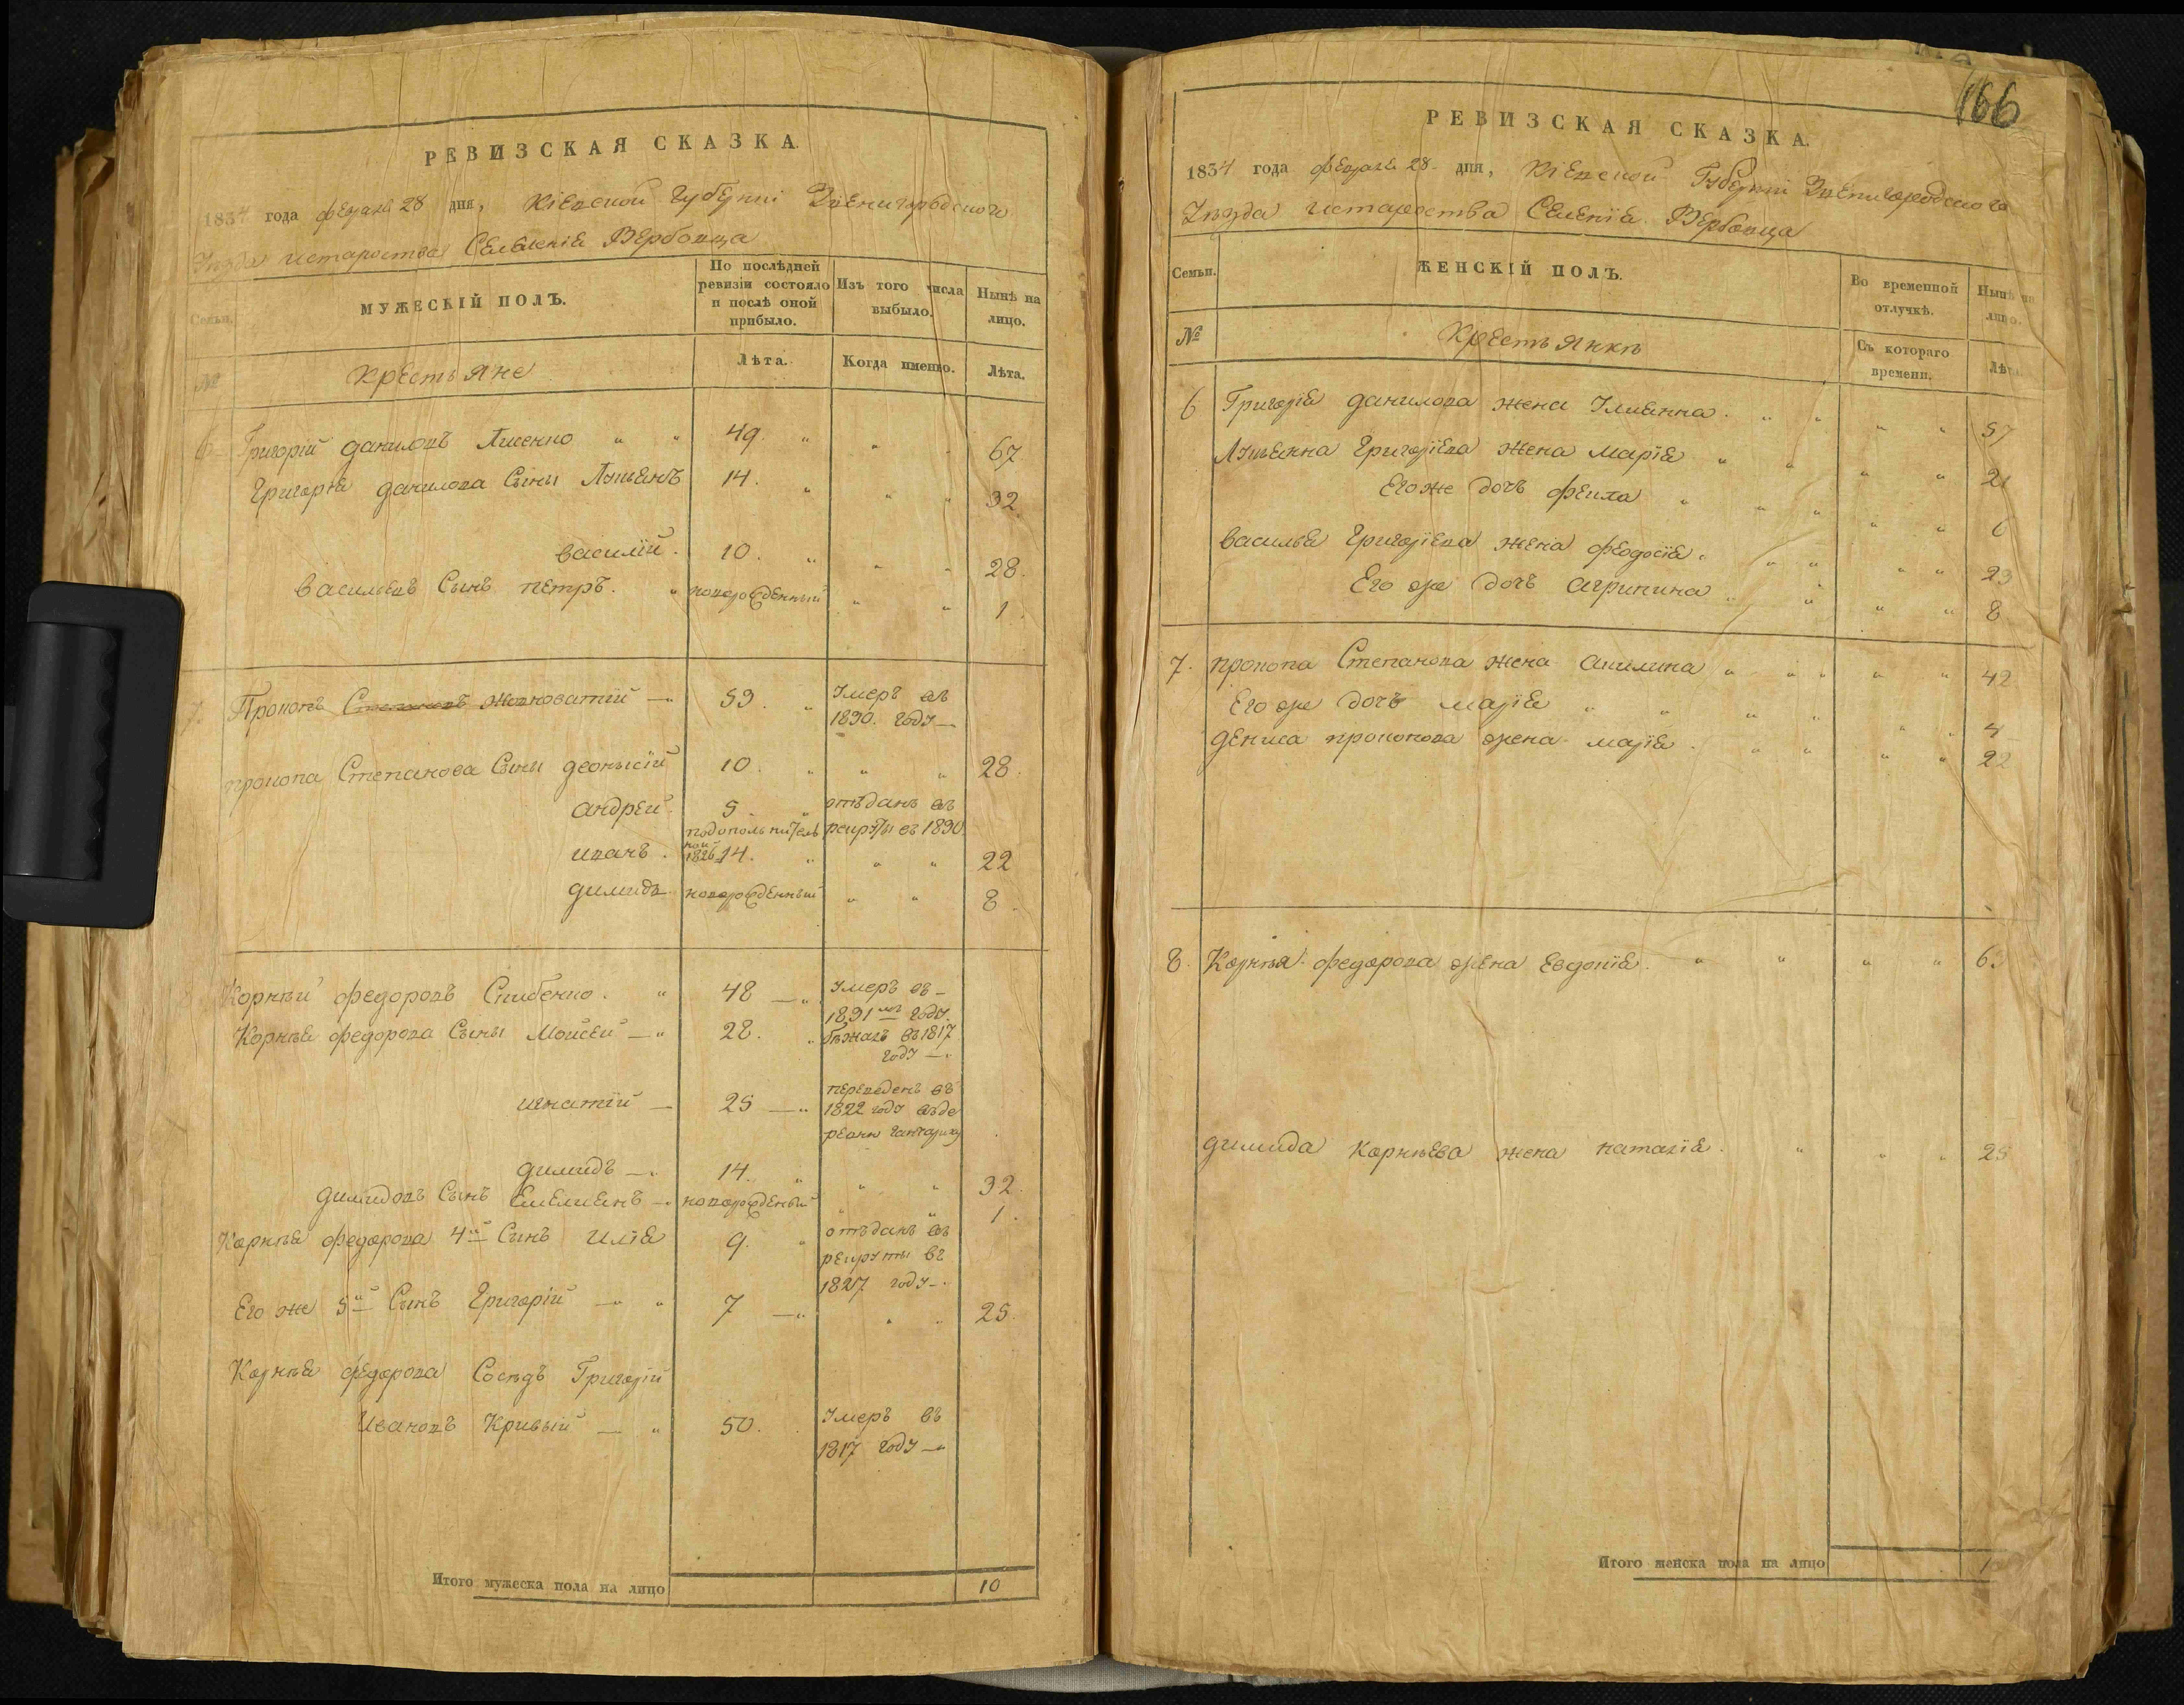 РЕВИЗСКАЯ СКАЗКА.
1834 года февраля 28 дня, Кіевской Губерніи Звенигородского
Уезда истароства Селенія Вербовца
Семьи.
МУЖЕСКІЙ ПОЛЪ.
По послѣдней ревизіи состояло и послѣ оной прибыло.
Изъ того числа выбыло.
Нынѣ на лицо.
№
Крестьяне
Лѣта.
Когда именно.
Лѣта.
6 Григорій даниловъ Лисенко 49. 67
Григорія данилова Сыны Лукьянъ 14. 32.
василій. 10. 28.
васильевъ Сынъ петръ. новорожденный 1.
7. Прокопъ Степановъ Жовноватій 59. Умеръ въ
1830. году
прокопа Степанова Сыны деонысій 10. 28.
андрей. 5 отъданъ въ
рекруты въ 1830
подополнитель
ной
иванъ. 1826 14. 22
димидъ новорожденный 8.
Корнѣй федоровъ Скибенко. 48 Умеръ въ
1831мъ году.
Корнѣя федорова Сыны Мойсей 28. бѣжалъ въ 1817
году
игнатій 25 переведенъ въ
1822 году въ де
ревню
димидъ 14. 32.
димидовъ Сынъ Емелиянъ новорожденый 1.
Корнѣя федорова 4й Сынъ илія 9. отъданъ въ
рекруты въ
1827 году
Его же 5й Сынъ Григорій 7 25.
Корнѣя федорова Сосѣдъ Григорій
Ивановъ Кривый 50. Умеръ въ
1817 году
Итого мужеска пола на лицо 10
166
РЕВИЗСКАЯ СКАЗКА.
1834 года февраля 28 дня, Кіевской Губерніи Звенигородского
Уезда истароства Селенія Вербовца
Семьи.
ЖЕНСКІЙ ПОЛЪ.
Во временной отлучкѣ.
Нынѣ на лицо.
№
Крестьянкѣ
Съ котораго времени.
Лѣта
6 Григорія данилова жена Улиянна. 57
Лукьянна Григоріева жена марія 21
Егоже дочъ фекла 6
василья Григоріева жена феодосія. 23
Его же дочъ агрипина 8
7. прокопа Степанова жена акилина 42
Его же дочъ марія 4
дениса прокопова жена марія. 22
8. Корнѣя федорова жена Евдокія. 6
димида Корнѣева жена наталія. 25
Итого женска пола на лицо 1